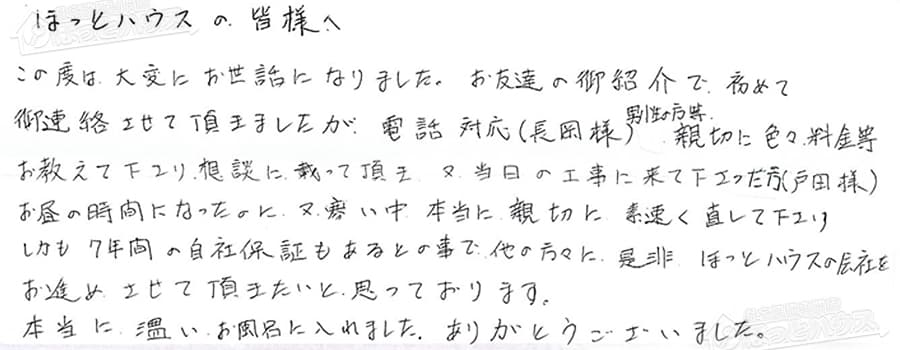 ほっとハウスの皆様へ
この度は大変にお世話になりました。お友達の御紹介で初めて
御連絡させて頂きましたが、電話対応(長岡様)男性の方等、親切に色々料金等
お教えて下さり、相談に載って頂き、又、当日の工事に来て下さった方(戸田様)
お昼の時間になったのに、又、寒い中、本当に親切に、素速く直して下さり
しかも7年間の自社保証もあるとの事で、他の方々に是非ほっとハウスの会社を
お進めさせて頂きたいと思っております。
本当に温いお風呂に入れました。ありがとうございました。